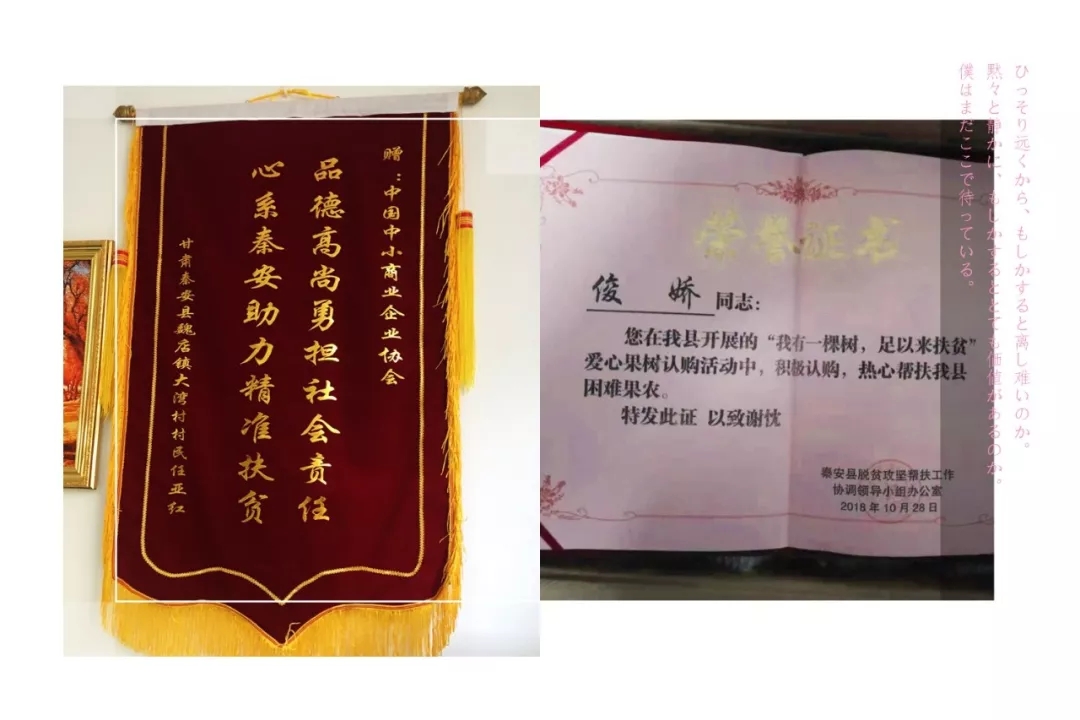 赠:中国中小商业企业协会
品德高尚勇担社会责任
心系秦安助力精准扶贫
甘肃秦安县魏店镇大湾村村民任亚红
荣誉证书
俊娇 同志:
您在我县开展的“我有一棵树，足以来扶贫”
爱心果树认购活动中，积极认购，热心帮扶我县
困难果农。
特发此证 以致谢忱
秦安县脱贫攻坚帮扶工作
协调领导小组办公室
2018年10月28日
ひっそり远くから、もしかすると离し难いのか。
黙々と静かに、もしかするととても価値があるのか。
僕はまだここで待っている。